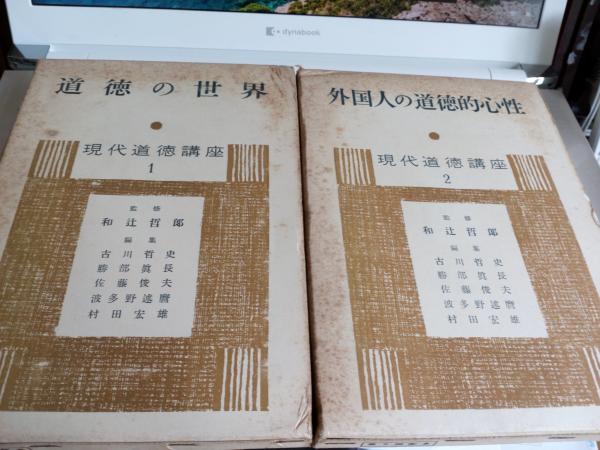 dynabook
道徳の世界
現代道徳講座
1
監修
和辻哲郎
編集
古川哲史
勝部眞長
佐藤俊夫
波多野述麿
村田宏雄
外国人の道徳的心性
現代道徳講座
2
監修
和辻哲郎
編集
古川哲史
勝部眞長
佐藤俊夫
波多野述麿
村田宏雄